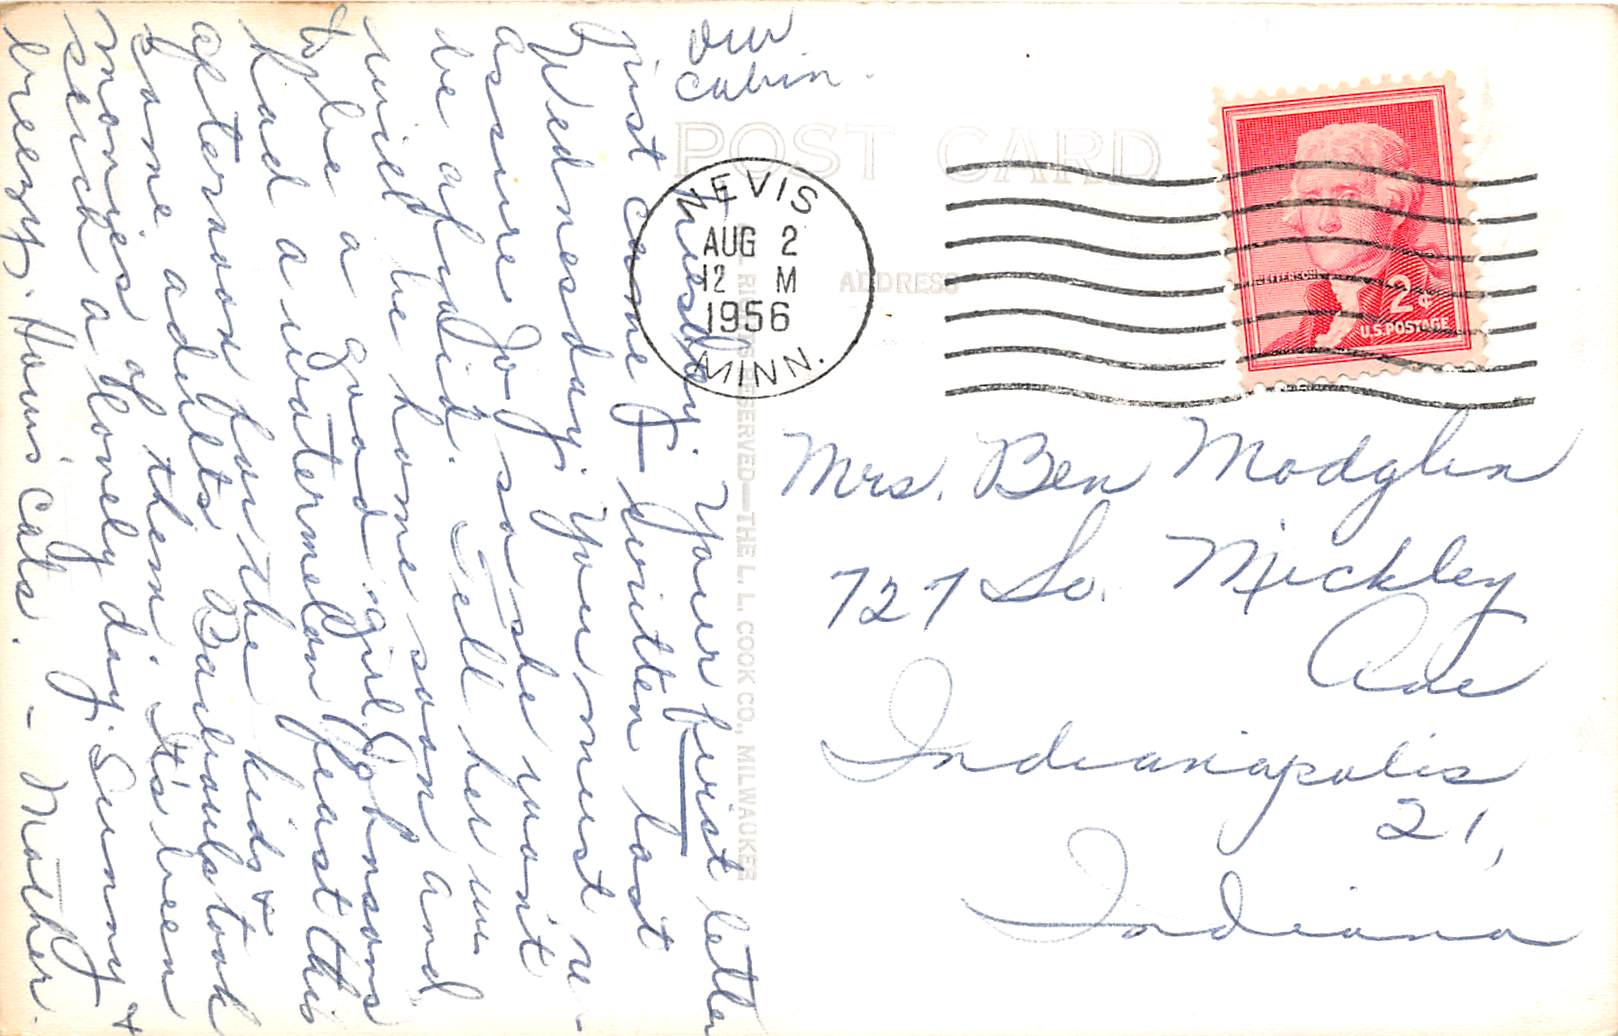 Our
cabin.
POST CARD
ADDRESS
NEVIS
AUG 2
12 M
1956
MINN.
JEFFERSON
2¢
U.S. POSTAGE
L RIGHTS RESERVED—THE L. L. COOK CO., MILWAUKEE
Thursday. Your first letter
just came — written last
Wednesday. You must re-
assure Jo so she won't
be afraid. Tell her we
will be home soon and
to be a good girl. Johnsons
had a watermelon feast this
afternoon for the kids &
some adults. Barbouls took
movies of them. It's been
such a lovely day. Sunny &
breezy. How's cats. — Mother.
Mrs. Ben Modglin
727 So. Mickley
Ave
Indianapolis
21,
Indiana